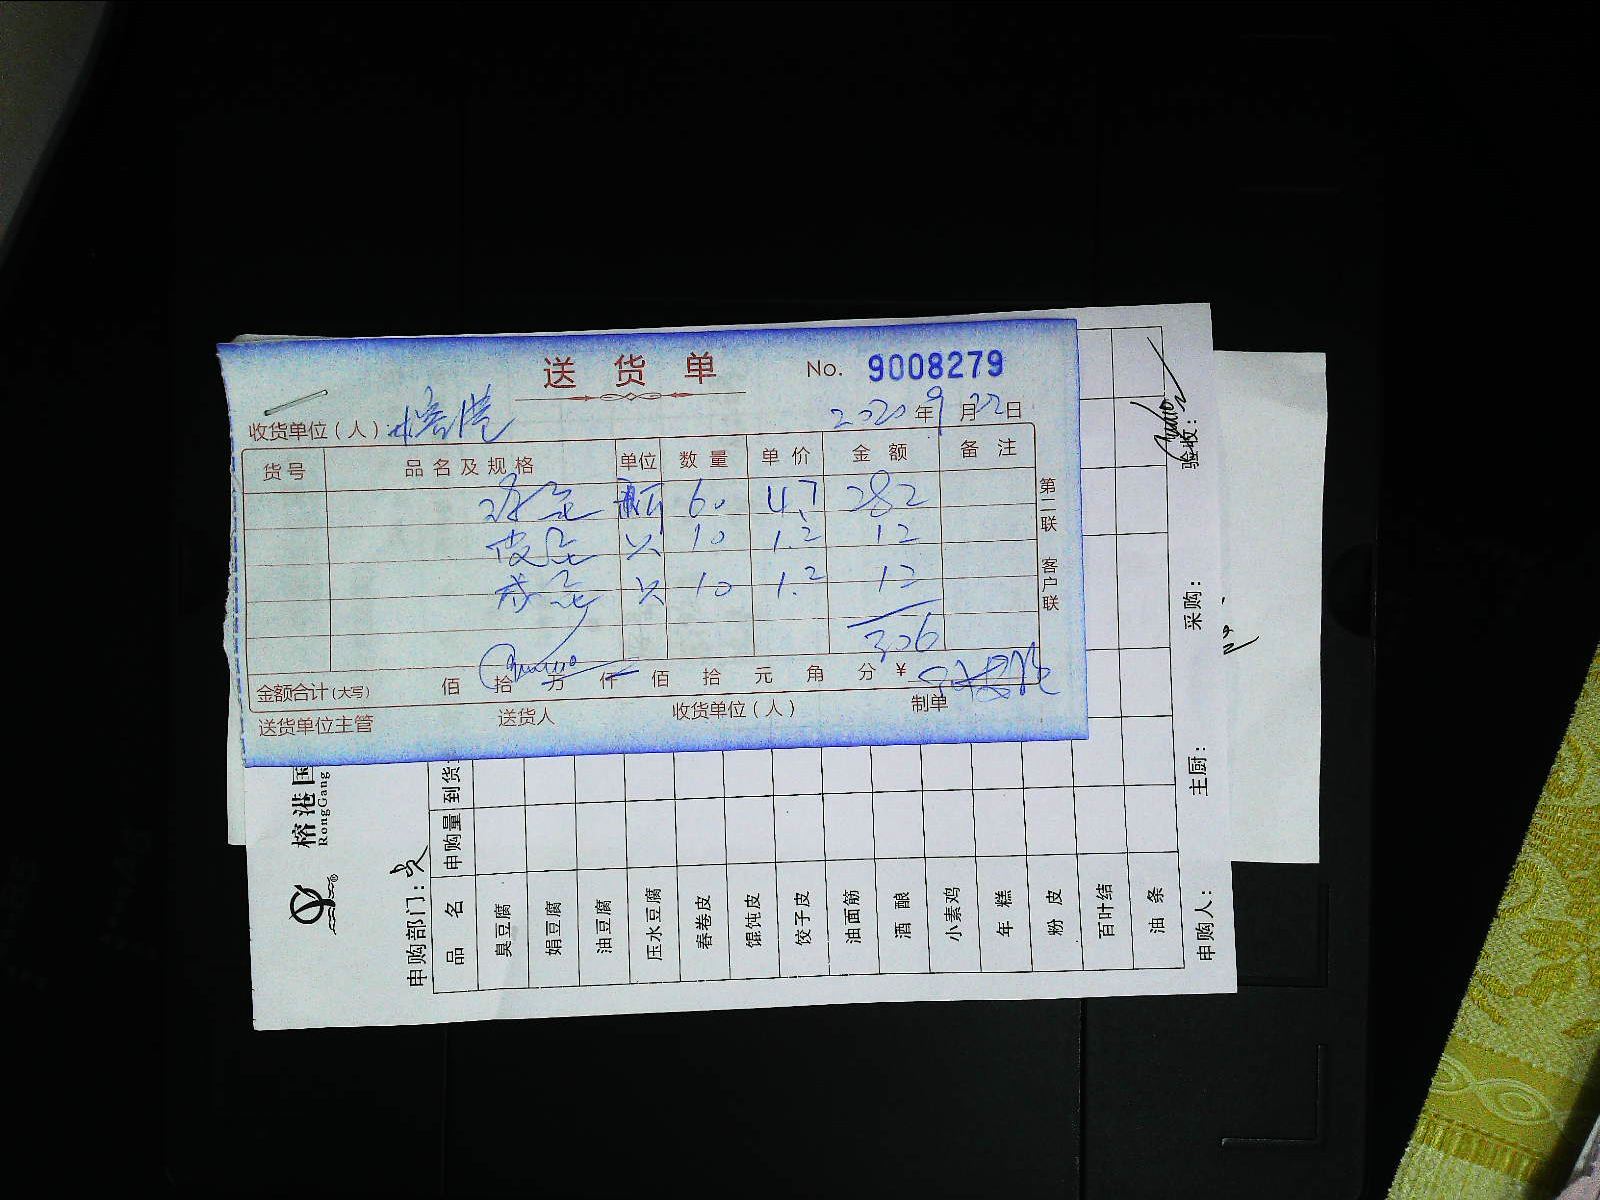 送货单 No. 9008279
收货单位(人): 榕港 2020年9月22日
货号 品名及规格 单位 数量 单价 金额 备注
60 4.7 282
皮蛋 只 10 1.2 12
咸蛋 只 10 1.2 12
306
金额合计(大写) 佰 拾 万 仟 佰 拾 元 角 分 ¥
送货单位主管 送货人 收货单位(人) 制单
第二联 客户联
榕港国
RongGang
申购部门:
品名 申购量 到货
臭豆腐
娟豆腐
油豆腐
压水豆腐
春卷皮
馄饨皮
饺子皮
油面筋
酒酿
小素鸡
年糕
粉皮
百叶结
油条
申购人: 主厨: 采购: 验收: